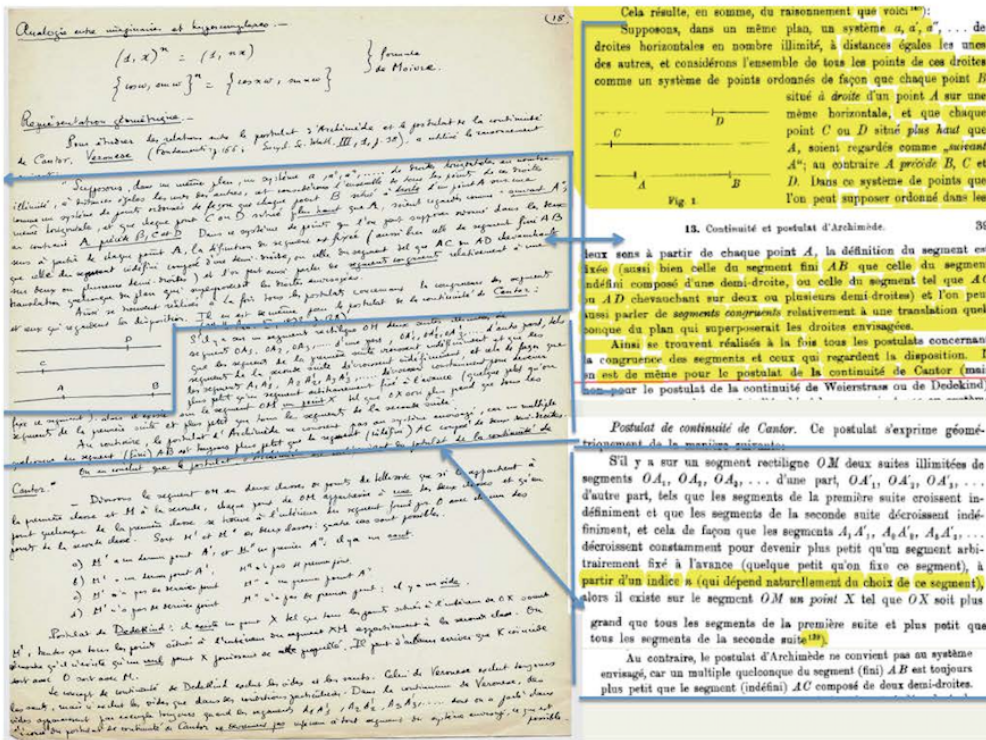 (18
Analogie entre imaginaires et hypercomplexes. —
(1, x)ⁿ = (1, nx)
{cos ω, sin ω}ⁿ = {cos nω, sin nω}
} formule
de Moivre.
Représentation géométrique. —
Pour étudier les relations entre le postulat d'Archimède et le postulat de la continuité
de Cantor, Veronese (Fondamenti, p. 166; Encycl. Sc. Math. III, 1, p. 38), a utilisé le raisonnement
"Supposons, dans un même plan, un système a, a', a", .... de droites horizontales en nombre
illimité, à distances égales les unes des autres, et considérons l'ensemble de tous les points de ces droites
comme un système de points ordonnés de façon que chaque point B situé à droite d'un point A sur une
même horizontale, et que chaque point C ou D situé plus haut que A, soient regardés comme "suivant A";
au contraire A précède B, C et D. Dans ce système de points que l'on peut supposer ordonné dans les deux
sens à partir de chaque point A, la définition du segment est fixée (aussi bien celle du segment fini AB
que celle du segment indéfini composé d'une demi-droite, ou celle du segment tel que AC ou AD chevauchant
sur deux ou plusieurs demi-droites) et l'on peut aussi parler de segments congruents relativement à une
translation quelconque du plan qui superposerait les droites envisagées.
Ainsi se trouvent réalisés à la fois tous les postulats concernant la congruence des segments
et ceux qui regardent la disposition. Il en est de même pour le postulat de la continuité de Cantor :
D
C
A B
S'il y a sur un segment rectiligne OM deux suites illimitées de
segments OA₁, OA₂, OA₃, ... d'une part, OA'₁, OA'₂, OA'₃, ... d'autre part, tels
que les segments de la première suite croissent indéfiniment et que les
segments de la seconde suite décroissent indéfiniment, et cela de façon que
les segments A₁A'₁, A₂A'₂, A₃A'₃ ... décroissent constamment pour devenir
plus petit qu'un segment arbitrairement fixé à l'avance (quelque petit qu'on
fixe ce segment), alors il existe sur le segment OM un point X tel que OX soit plus grand que tous les
segments de la première suite et plus petit que tous les segments de la seconde suite.
Au contraire, le postulat d'Archimède ne convient pas au système envisagé, car un multiple
quelconque du segment (fini) AB est toujours plus petit que le segment (indéfini) AC composé de deux demi-droites.
On en conclut que le postulat d'Archimède du postulat de la continuité de
Cantor."
— Divisons le segment OM en deux classes de points de telle sorte que si O appartient à
la première classe et M à la seconde, chaque point de OM appartienne à une des deux classes et qu'un
point quelconque de la première classe se trouve à l'intérieur du segment formé par O avec chacun des
points de la seconde classe. Soit M' et M" ces deux classes: quatre cas sont possibles.
a) M' a un dernier point A', et M" un premier A"; il y a un saut.
b) M' a un dernier point A'; M" n'a pas de premier point.
c) M' n'a pas de dernier point M" a un premier point A"
d) M' n'a pas de dernier point M" n'a pas de premier point: il y a un vide.
Postulat de Dedekind: il existe un point X tel que tous les points situés à l'intérieur de OX soient
M', tandis que tous les points situés à l'intérieur du segment XM appartiennent à la seconde classe. On
démontre qu'il n'existe qu'un seul point X jouissant de cette propriété. Il peut d'ailleurs arriver que X coïncide
soit avec O soit avec M.
Le concept de continuité de Dedekind exclut les vides et les sauts. Celui de Veronese exclut toujours
les sauts, mais n'exclut les vides que dans des conditions particulières. Dans le continuum de Veronese, des
vides apparaissent par exemple toujours quand les segments A₁A'₁, A₂A'₂, A₃A'₃, .... dont on a parlé dans
l'énoncé du postulat de continuité de Cantor ne deviennent pas inférieurs à tout segment du système envisagé, ce qui est
possible.
Cela résulte, en somme, du raisonnement que voici
Supposons, dans un même plan, un système a, a', a", ... de
droites horizontales en nombre illimité, à distances égales les unes
des autres, et considérons l'ensemble de tous les points de ces droites
comme un système de points ordonnés de façon que chaque point B
situé à droite d'un point A sur une
même horizontale, et que chaque
point C ou D situé plus haut que
A, soient regardés comme „suivant
A“; au contraire A précède B, C et
D. Dans ce système de points que
l'on peut supposer ordonné dans les
D
C
A B
Fig 1.
13. Continuité et postulat d'Archimède. 39
deux sens à partir de chaque point A, la définition du segment est
fixée (aussi bien celle du segment fini AB que celle du segmen
indéfini composé d'une demi-droite, ou celle du segment tel que AC
ou AD chevauchant sur deux ou plusieurs demi-droites) et l'on peu
aussi parler de segments congruents relativement à une translation quel
conque du plan qui superposerait les droites envisagées.
Ainsi se trouvent réalisés à la fois tous les postulats concernan
la congruence des segments et ceux qui regardent la disposition. I
en est de même pour le postulat de la continuité de Cantor (mai
non pour le postulat de la continuité de Weierstrass ou de Dedekind)
Postulat de continuité de Cantor. Ce postulat s'exprime géomé-
triquement de la manière suivante:
S'il y a sur un segment rectiligne OM deux suites illimitées de
segments OA₁, OA₂, OA₃, ... d'une part, OA'₁, OA'₂, OA'₃, ...
d'autre part, tels que les segments de la première suite croissent in-
définiment et que les segments de la seconde suite décroissent indé-
finiment, et cela de façon que les segments A₁A'₁, A₂A'₂, A₃A'₃, ...
décroissent constamment pour devenir plus petit qu'un segment arbi-
trairement fixé à l'avance (quelque petit qu'on fixe ce segment), à
partir d'un indice n (qui dépend naturellement du choix de ce segment),
alors il existe sur le segment OM un point X tel que OX soit plus
grand que tous les segments de la première suite et plus petit que
tous les segments de la seconde suite¹³⁹).
Au contraire, le postulat d'Archimède ne convient pas au système
envisagé, car un multiple quelconque du segment (fini) AB est toujours
plus petit que le segment (indéfini) AC composé de deux demi-droites.